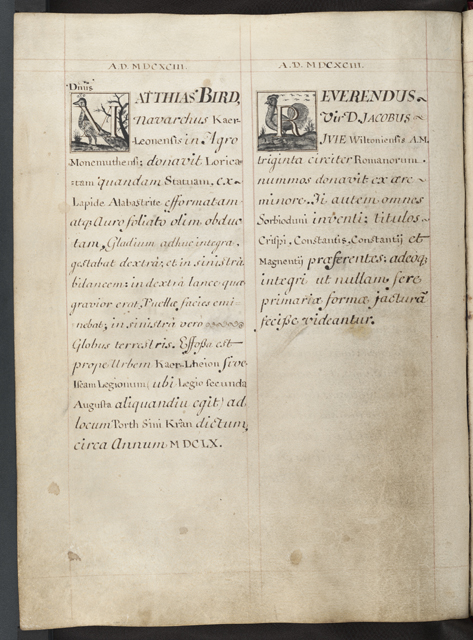 A.D. MDCXCIII.
Dnus
MATTHIAS BIRD,
Navarchus Kaer-
Leonensis in Agro
Monemuthensi; donavit Lorica-
=tam quandam Statuam, ex
Lapide Alabastrite efformatam
atq; Auro foliato olim obduc-
tam. Gladium adhuc integra
gestabat dextrâ; et in sinistrâ
bilancem: in dextrâ lance quæ
gravior erat, Puellæ facies emi-
nebat; in sinistrâ vero
Globus terrestris. Effossa est
prope Urbem Kaer-Lheion sive
Iscam Legionum (ubi Legio secunda
Augusta aliquandiu egit) ad
locum Porth Sini Krân dictum,
circa Annum MDCLX.
A.D. MDCXCIII.
REVERENDUS
Vir D. JACOBUS
IVIE Wiltoniensis A.M.
triginta circiter Romanorum
nummos donavit ex ære
minore. Ii autem omnes
Sorbioduni inventi; titulos
Crispi, Constantis, Constantij et
Magnentij præferentes: adeoq;
integri ut nullam fere
primariæ formæ jacturâ
fecisse videantur.